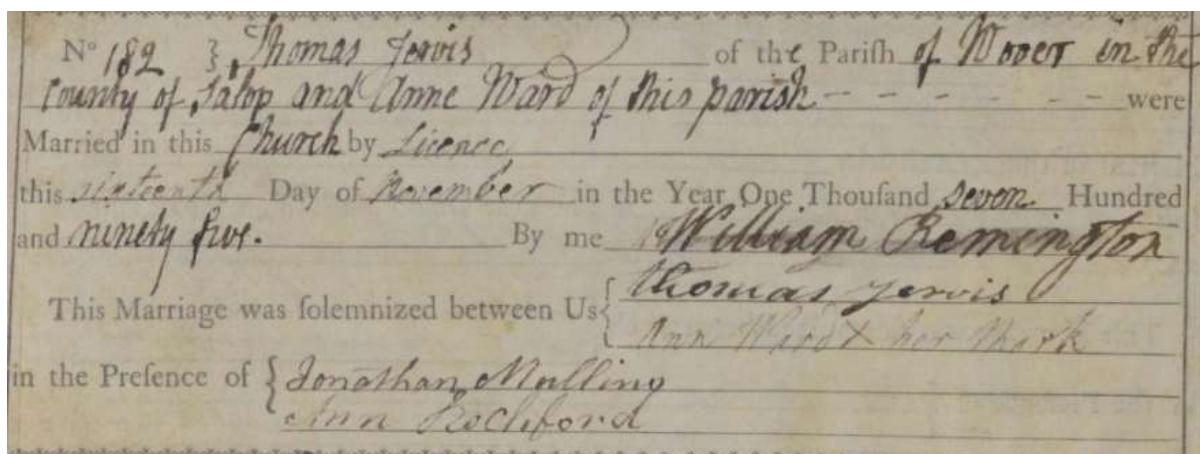 No 182 } Thomas Jervis of the Pariſh of Woore in the
County of Salop and Anne Ward of this parish - - - - - - were
Married in this Church by Licence
this sixteenth Day of November in the Year One Thouſand seven Hundred
and ninety five. By me William Remington
This Marriage was ſolemnized between Us { Thomas Jervis
Ann Ward X her Mark
in the Preſence of { Jonathan Malling
Ann Rochford